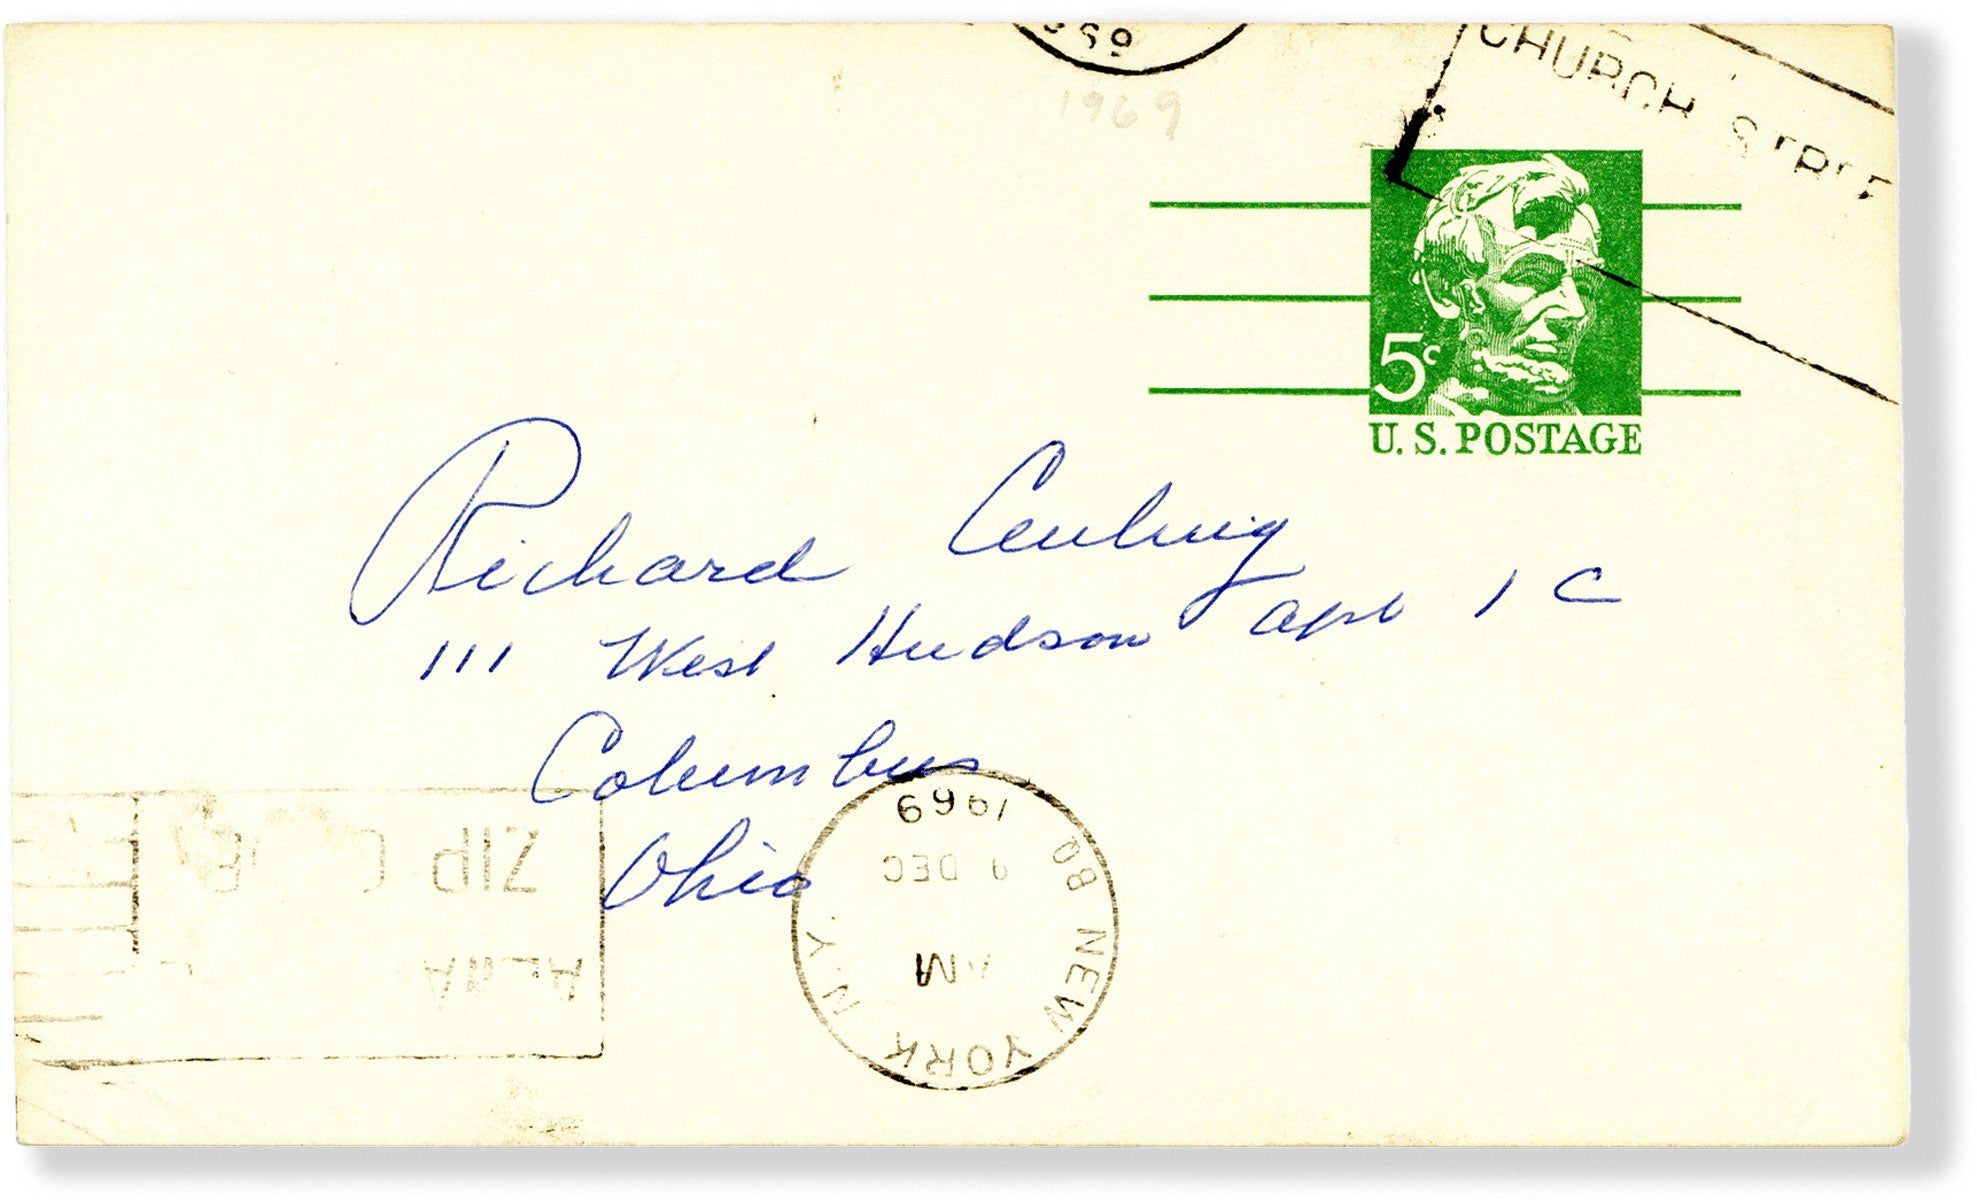 1969
CHURCH STREE
5c
U. S. POSTAGE
Richard
111 West Hudson apt 1 C
Columbus
Ohio
1969
9 DEC
AM
NEW YORK N.Y.
ZIP